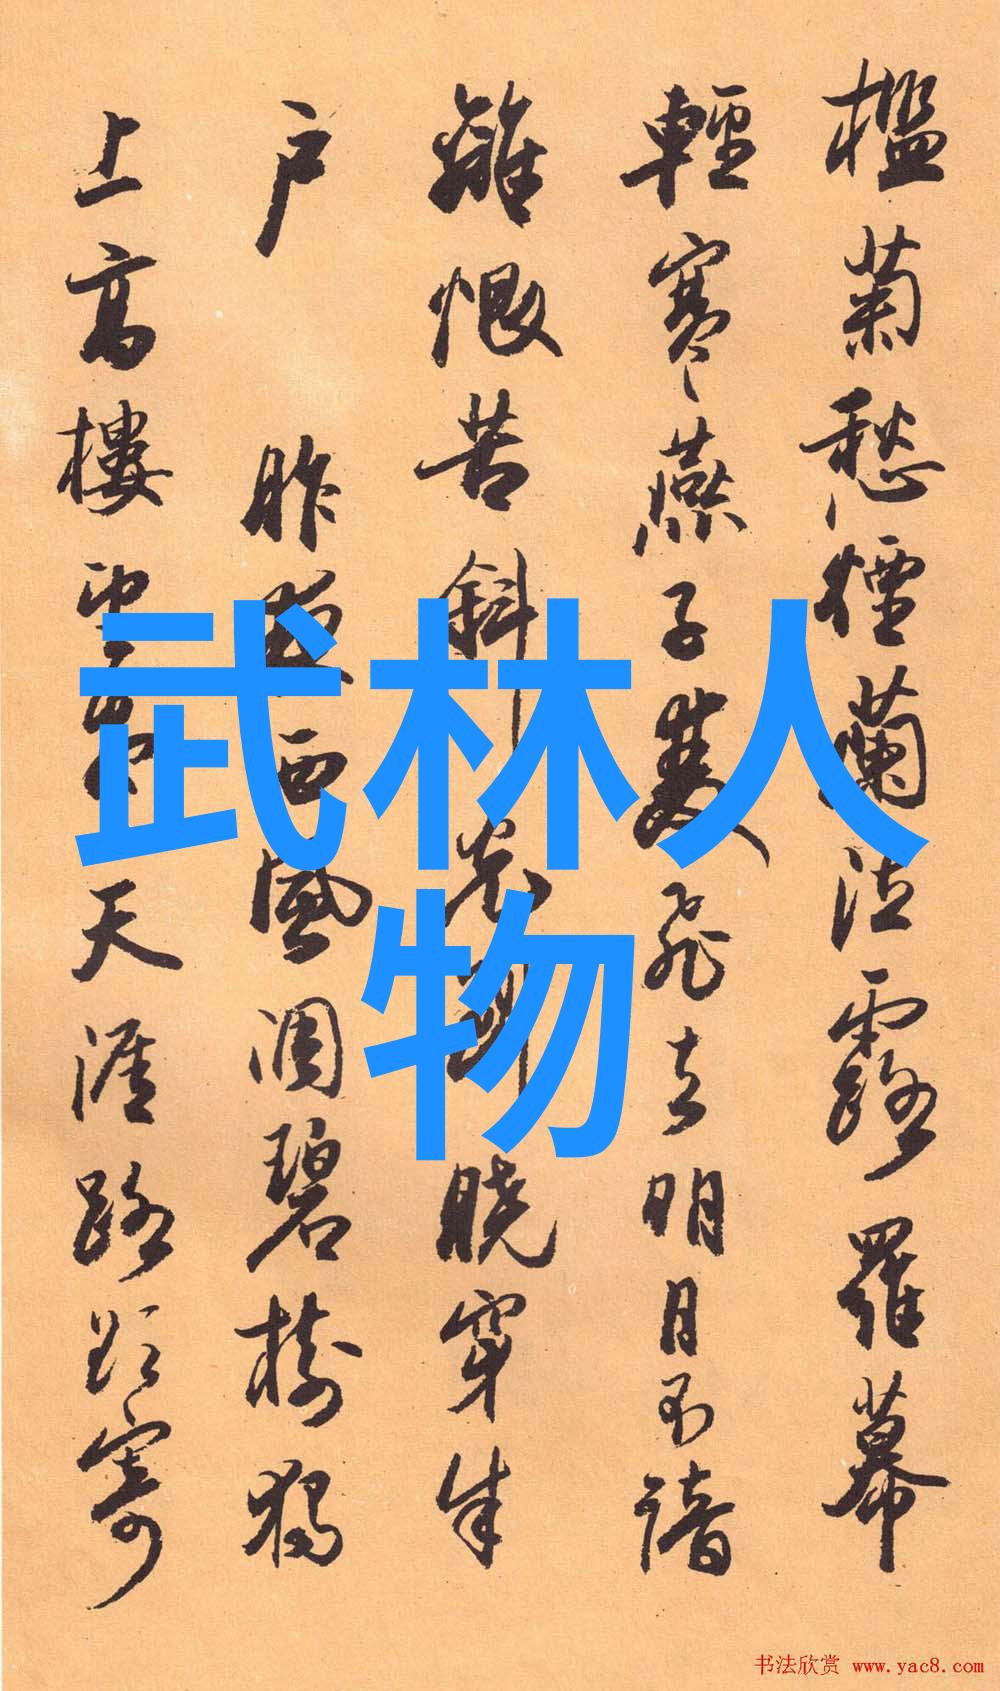 檻菊愁煙蘭泣露羅幕
輕寒燕子雙飛去明月不諳
離恨苦斜光到曉穿朱
户 昨夜西風凋碧樹獨
上高樓望盡天涯路欲寄
武林人
物
书法欣赏 www.yac8.com